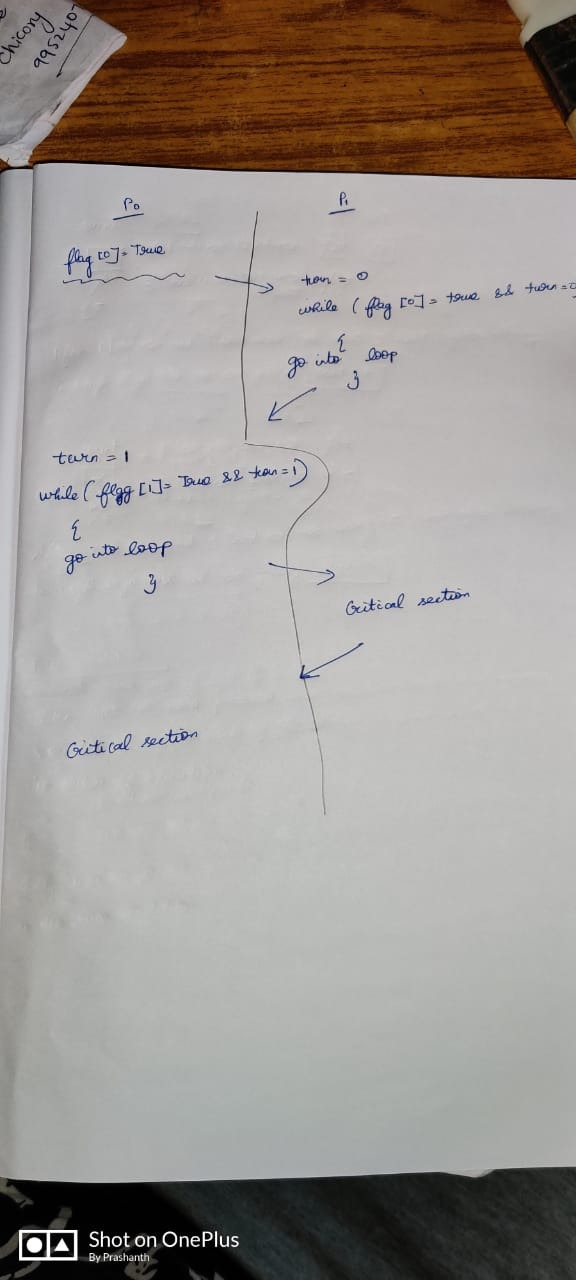 Chicory
995240
P0
P1
flag [0] = True
turn = 0
while ( flag [0] = true && turn = 0
{
go into loop
}
turn = 1
while ( flag [1] = True && turn = 1)
{
go into loop
}
Critical section
Critical section
Shot on OnePlus
By Prashanth